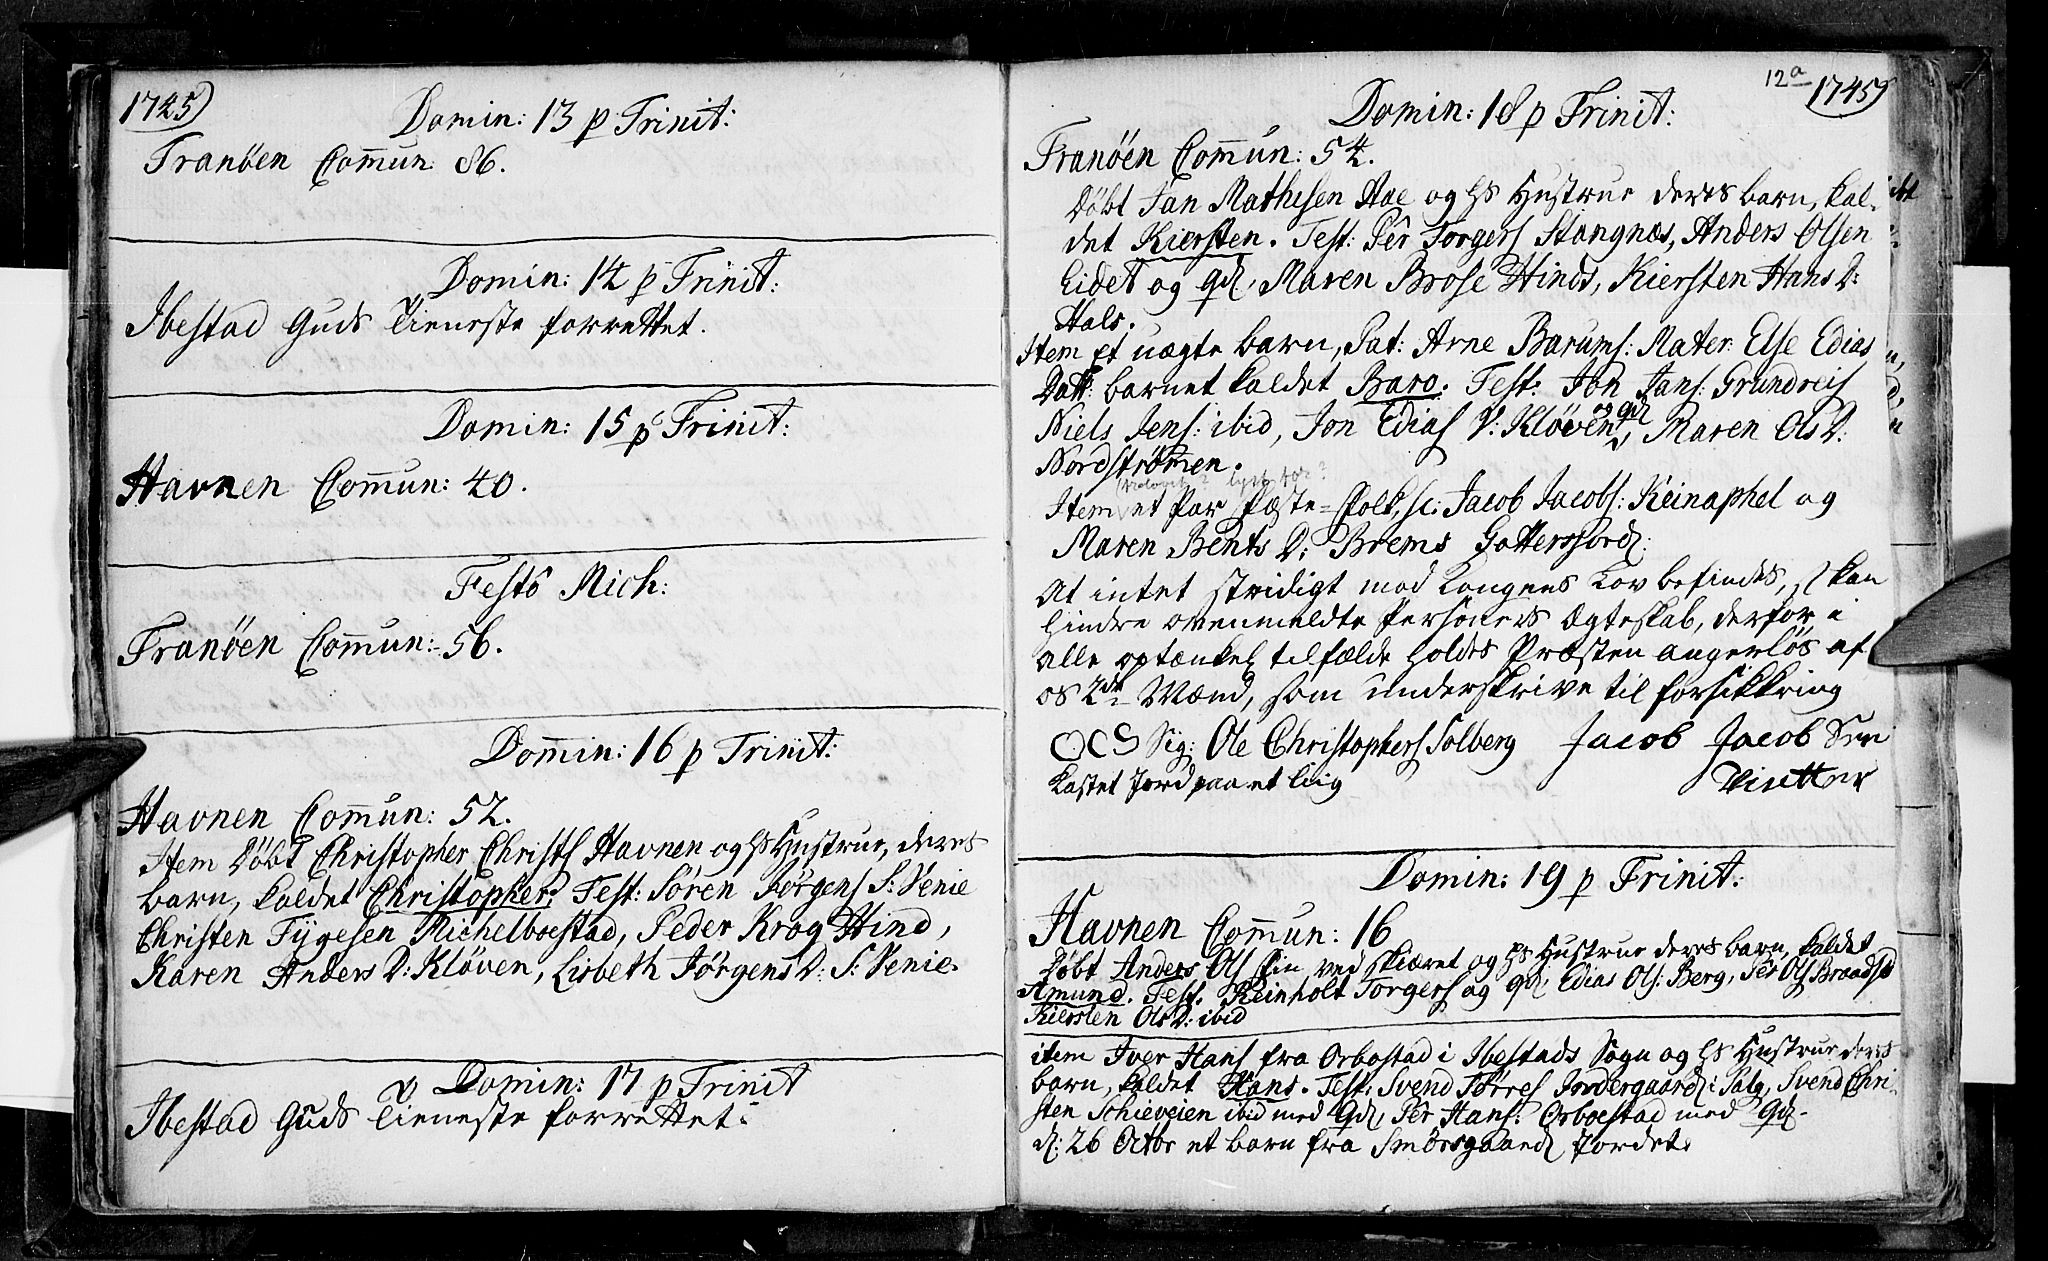 1745)
Domin: 13 p Trinit:
Tranöen Com̄un: 86.
Domin: 14 p Trinit:
Ibestad Guds Tieneste forrettet.
Domin: 15 p Trinit:
Havnen Com̄un: 40.
Festo Mich:
Tranöen Com̄un: 56.
Domin: 16 p Trinit:
Havnen Com̄un: 52.
Item Döbt Christopher Christs Havnen og hs Hustrue, deres
barn, kaldet Christopher, Test: Sören Jörgens S: Venie
Christen Tygesen Michelboestad, Peder Krog Hind,
Karen Anders D: Klöven, Lisbeth Jörgens D: S: Venie.
Domin: 17 p Trinit
Ibestad Guds Tieneste forrettet:
12a
1745)
Domin: 18 p Trinit:
Tranöen Com̄un: 54.
Döbt Jan Mathesen Aae og hs Hustrue deres barn, kal-
det Kiersten. Test: Pêr Torgers Stangnæs, Anders Olsen
Eidet og qd, Maren Brose Hinds, Kiersten Hans D:
Hals.
Item et uægte barn, Pat: Arne Barums: Mater: Else Edias
Datt: barnet kaldet Baro. Test: Jon Jans: Grundreis
Niels Jens: ibid, Jon Edias V: Klöven og qd, Maren Ols D:
Nordströmen.
Item et Par Fæste-Folk, sc: Jacob Jacobs: Keinaphel og
Maren Bents D: Brems Gottersford:
At intet stridigt mod Kongens Lov befindes, skan
hindre ovenmeldte Persôners Ægteskab, derfor i
alle optænkel tilfælde holdes Præsten angerlös af
os 2de Mænd, som underskrive til forsikkring
OCS Sig: Ole Christophers Solberg Jacob Jacob Sen
Kastet Jord paa et Liig
Domin: 19 p Trinit:
Havnen Com̄un: 16
Döbt Anders Ols Fin ved Skiæret og hs Hustrue deres barn, kaldet
Amund. Test: Reinholt Torgers og qd, Edias Ols: Berg, Pêr Ols Braadsl
Kiersten Ols D: ibid
item Iver Hans fra Orbostad i Ibestads Sogn og hs Hustrue deres
barn, kaldet Hans. Test: Svend Törres Jordergaard i Salg, Svend Chri-
sten Schieveien ibid med Qd, Pêr Hans: Orboestad med Qd.
d: 26 Octbr et barn fra Smörsgaard Jordet.